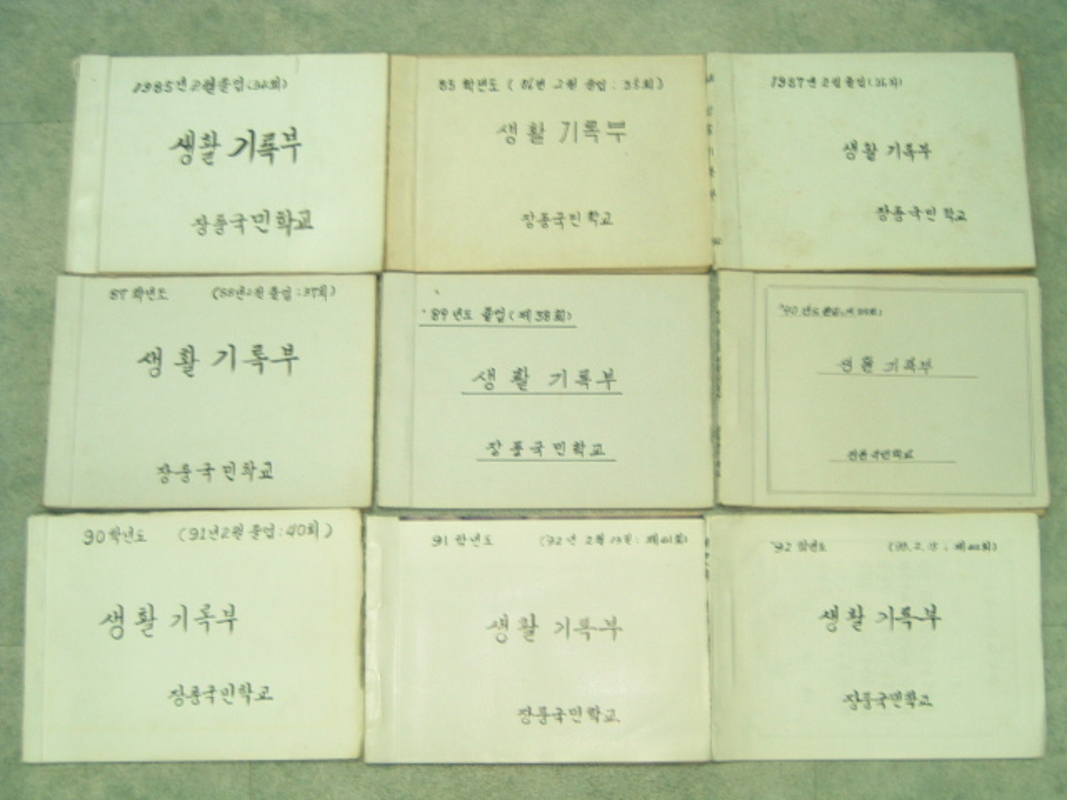 1985년 2월 졸업(34회)
생활 기록부
장풍국민학교
85 학년도 (86년 2월 졸업 : 35회)
생활 기록부
장풍국민학교
1987년 2월 졸업(36회)
생활 기록부
장풍국민학교
87 학년도 (88년 2월 졸업 : 37회)
생활 기록부
장풍국민학교
'89년도 졸업(제38회)
생활 기록부
장풍국민학교
'90년도 졸업
생활 기록부
장풍국민학교
90학년도 (91년 2월 졸업 : 40회)
생활 기록부
장풍국민학교
91 학년도 ('92년 2월 : 제41회)
생활 기록부
장풍국민학교
'92 학년도
생활 기록부
장풍국민학교